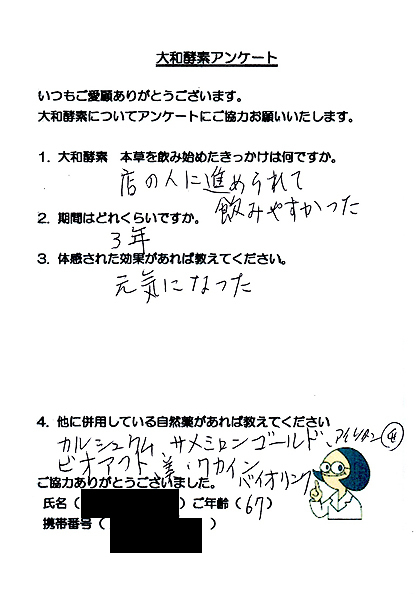 大和酵素アンケート
いつもご愛願ありがとうございます。
大和酵素についてアンケートにご協力お願いいたします。
1. 大和酵素　本草を飲み始めたきっかけは何ですか。
店の人に進められて
飲みやすかった
2. 期間はどれくらいですか。
3年
3. 体感された効果があれば教えてください。
元気になった
4. 他に併用している自然薬があれば教えてください
カルシュウム、サメミロンゴールド、
ビオアクト、美・ワカイン
バイオリンク
ご協力ありがとうございました。
氏名（　　　）ご年齢（67）
携帯番号（　　　）